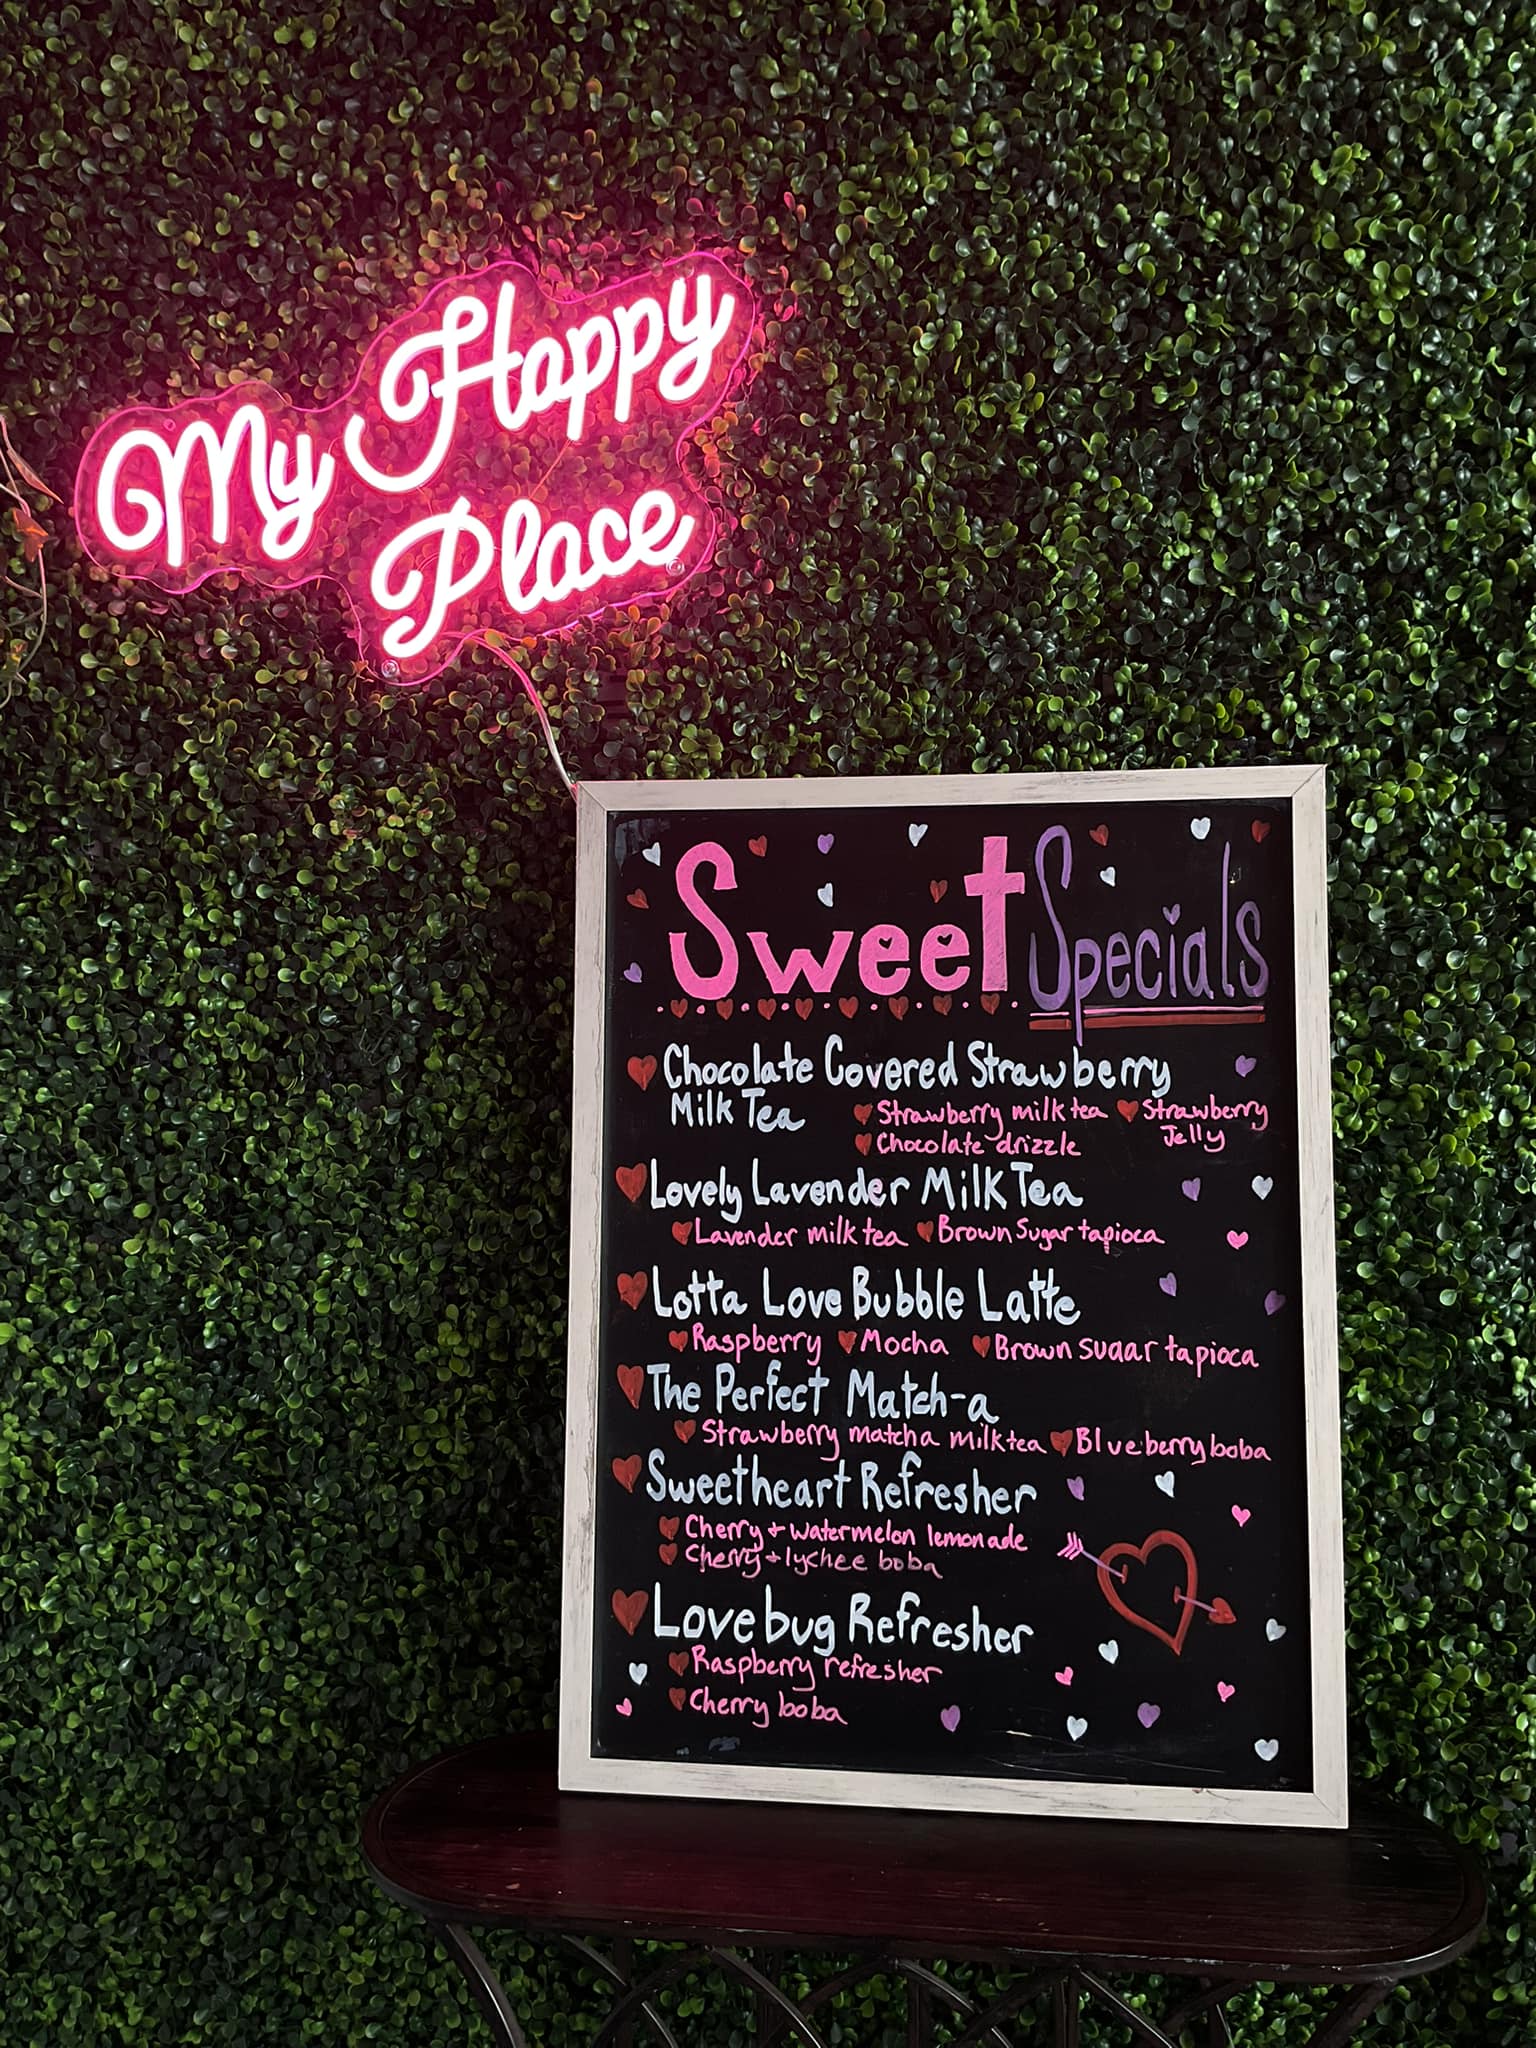 My Happy
Place
Sweet Specials
Chocolate Covered Strawberry
Milk Tea
Strawberry milk tea Strawberry
Jelly
Chocolate drizzle
Lovely Lavender Milk Tea
Lavender milk tea Brown Sugar tapioca
Lotta Love Bubble Latte
Raspberry Mocha Brown sugar tapioca
The Perfect Match-a
Strawberry matcha milk tea Blueberry boba
Sweetheart Refresher
Cherry + watermelon lemonade
Cherry + lychee boba
Lovebug Refresher
Raspberry refresher
Cherry boba